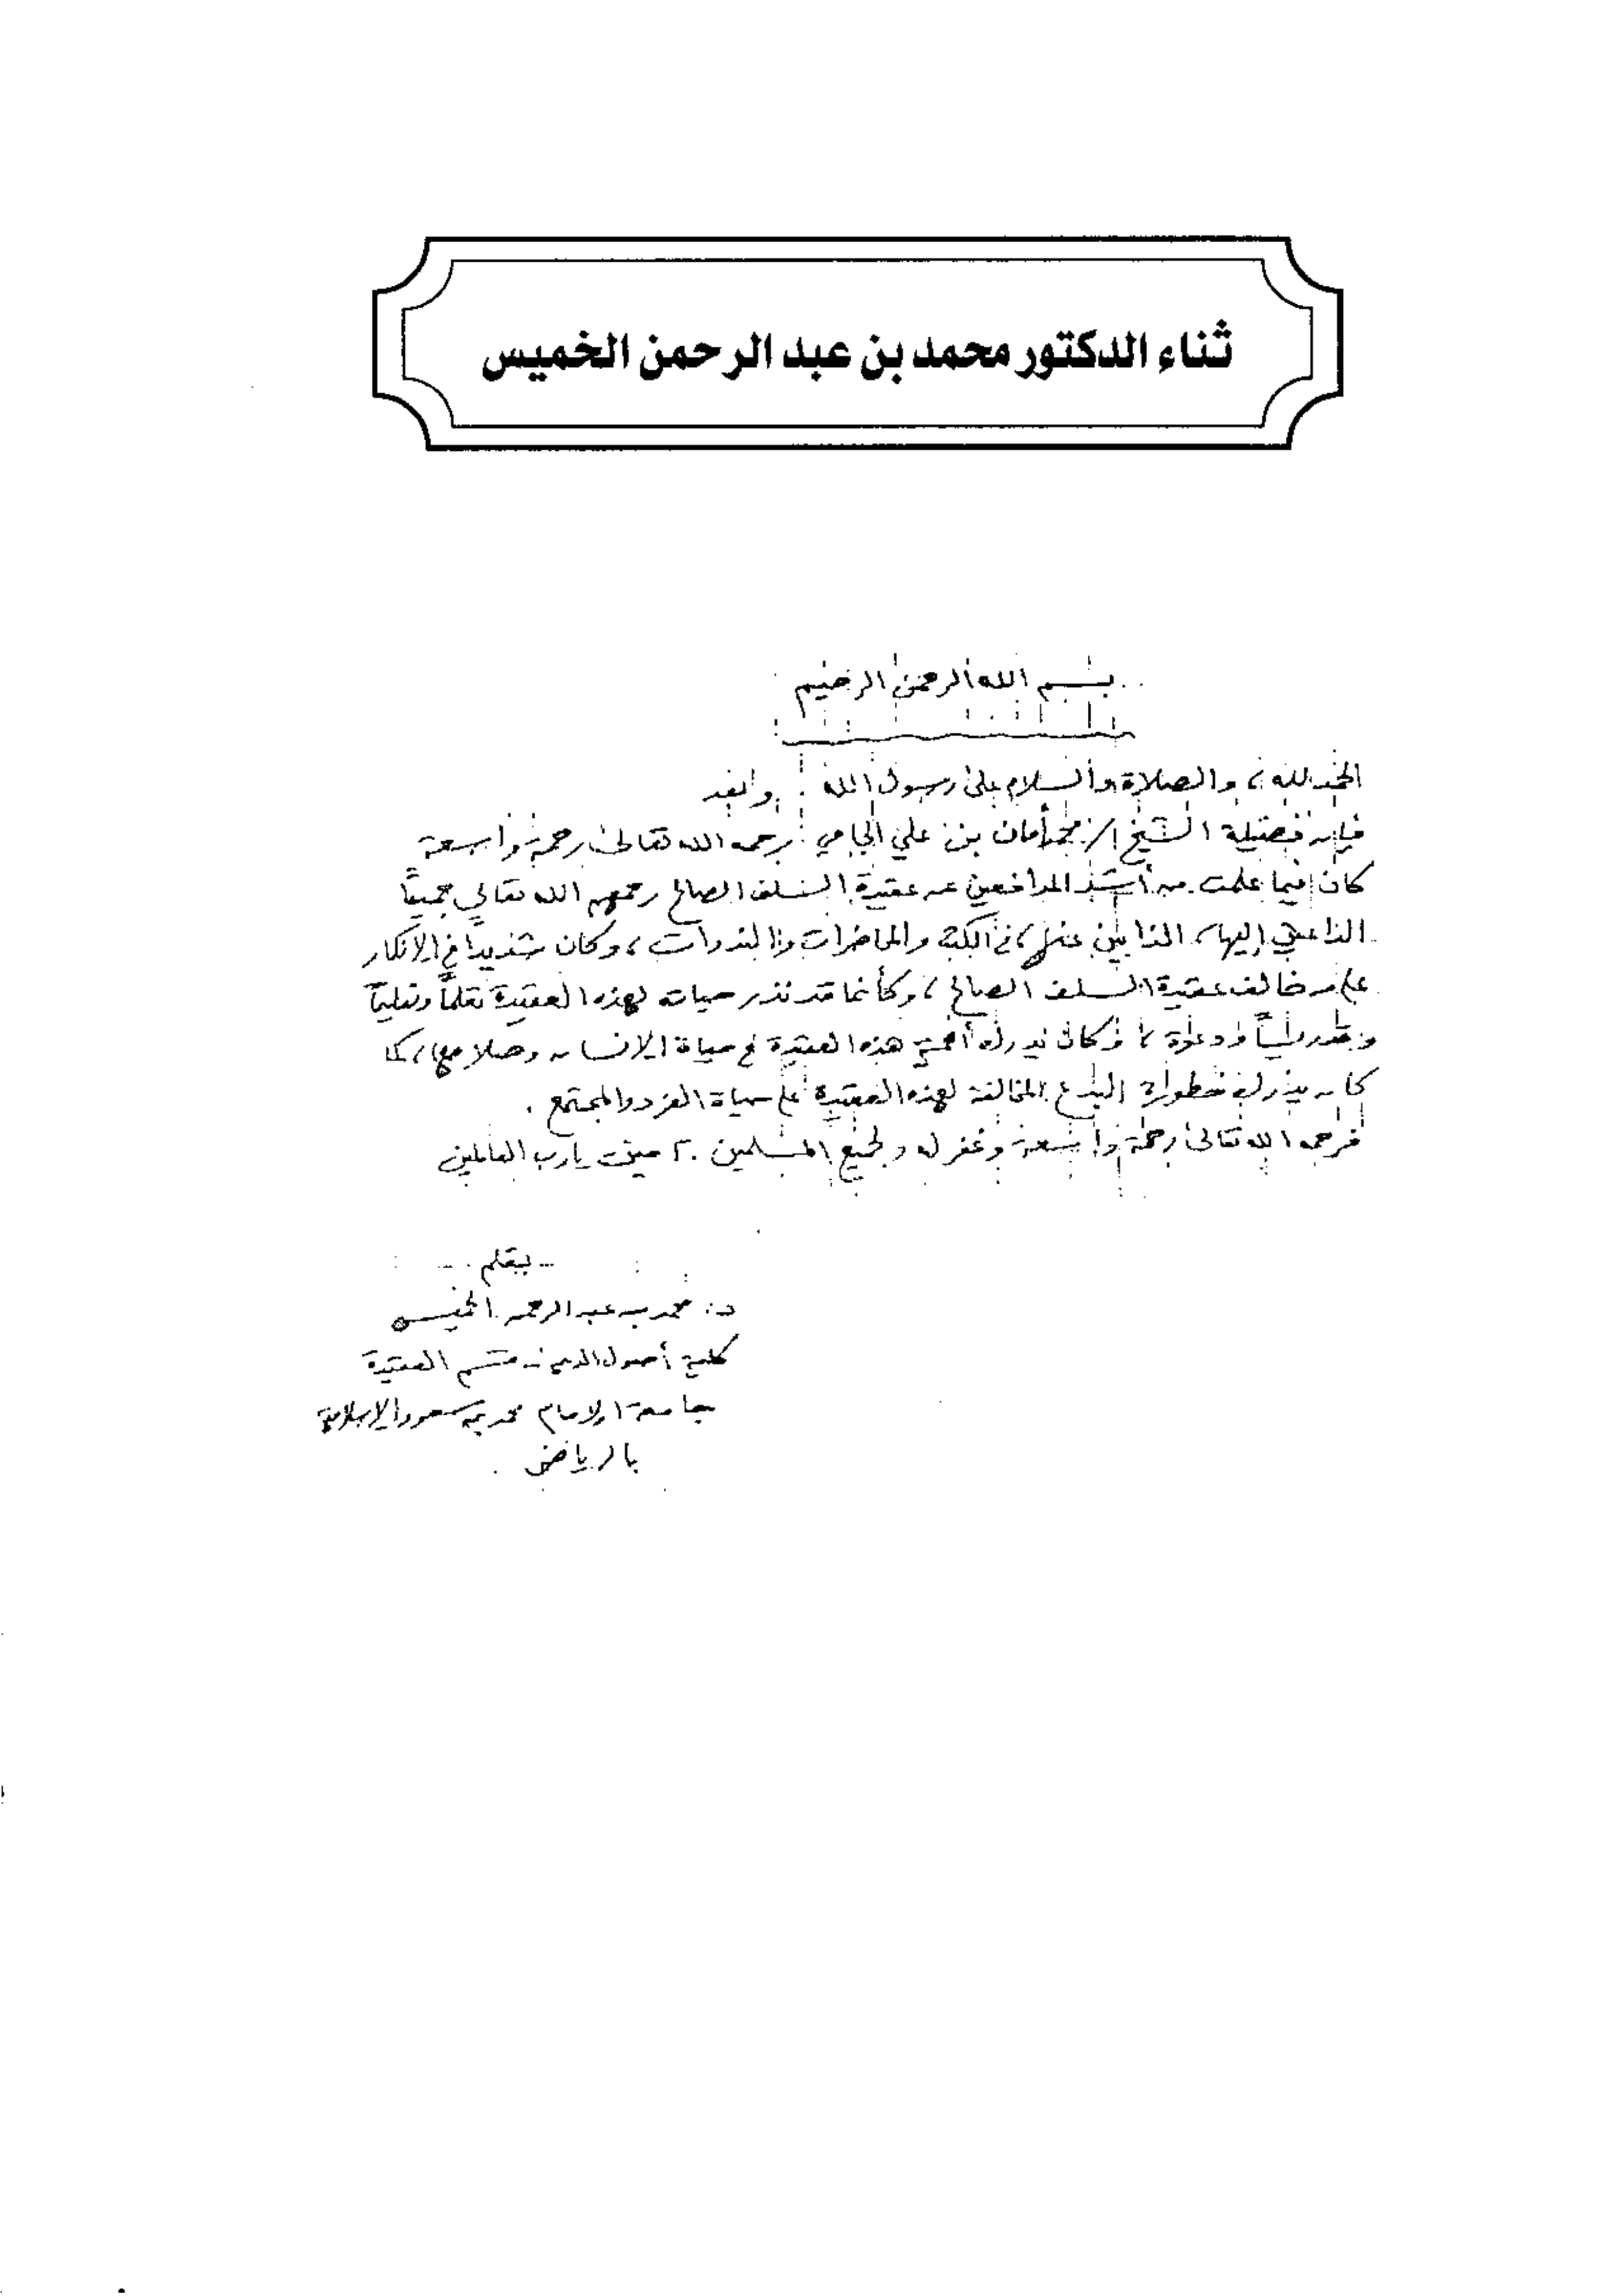 ثناء الدكتور محمد بن عبد الرحمن الخميس
بسم الله الرحمن الرحيم
الحمد لله، والصلاة والسلام على رسول الله . وبعد
فإن فضيلة الشيخ / محمد أمان بن علي الجامي رحمه الله تعالى رحمة واسعة
كان فيما علمت من أشد المدافعين عن عقيدة السلف الصالح رحمهم الله تعالى جميعاً
الداعين إليها، الذابين عنها، في الكتب والمحاضرات والندوات، وكان شديداً في الإنكار
على من خالف عقيدة السلف الصالح، وكأنما قد نذر حياته لهذه العقيدة تعلماً وتعليماً
وتدريساً ودعوة، وكان يدرك أهمية هذه العقيدة في حياة الإنسان وصلاحها، كما
كان يدرك خطورة البدع المخالفة لهذه العقيدة على حياة الفرد والمجتمع .
فرحمه الله تعالى رحمة واسعة وغفر له ولجميع المسلمين . آمين يارب العالمين
بقلم
د. محمد بن عبد الرحمن الخميس
كلية أصول الدين - قسم العقيدة
جامعة الإمام محمد بن سعود الإسلامية
بالرياض .